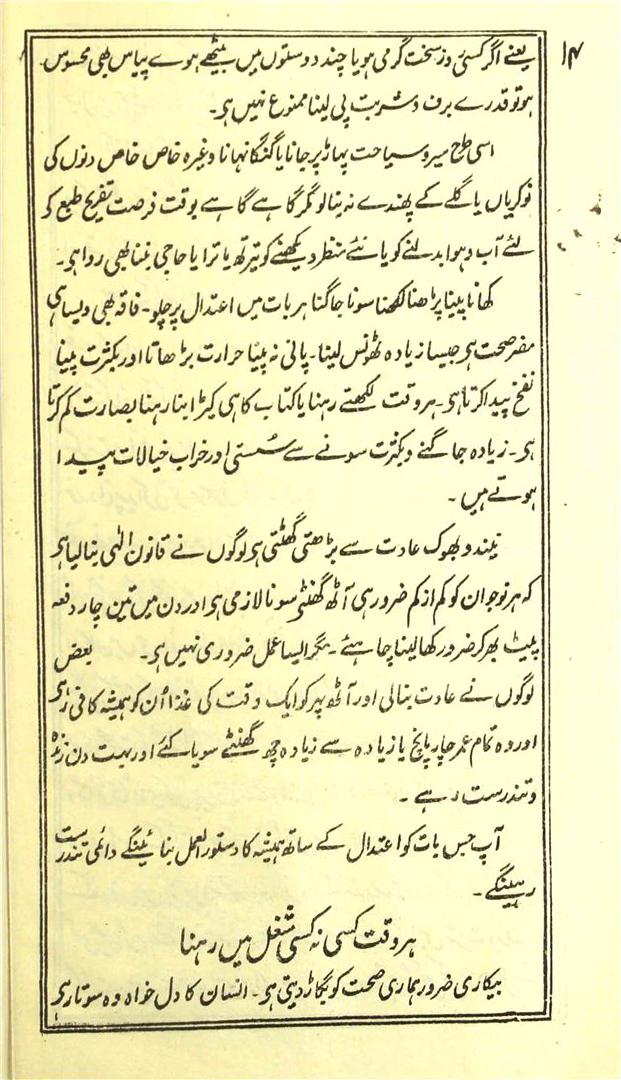 ۱۴
یعنے اگر کسی روز سخت گرمی ہو یا چند دوستوں میں بیٹھے ہوے پیاس بھی محسوس
ہو تو قدرے برف و شربت پی لینا ممنوع نہیں ہی۔
اسی طرح سیر و سیاحت پہاڑ پر جانا یا گنگا نہانا وغیرہ خاص خاص دنوں کی
نوکریاں یا گلے کے پھندے نہ بنا لو مگر گاہے گاہے بوقت فرصت تفریح طبع کے
لئے آب و ہوا بدلنے کو یا نئے منظر دیکھنے کو تیرتھ یاترا یا حاجی بننا بھی روا ہی۔
کھانا پینا پڑھنا لکھنا سونا جاگنا ہر بات میں اعتدال پر چلو۔ فاقہ بھی ویسا ہی
مضر صحت ہی جیسا زیادہ ٹھونس لینا۔ پانی نہ پینا حرارت بڑھاتا اور بکثرت پینا
نفخ پیدا کرتا ہی۔ ہر وقت لکھتے رہنا یا کتاب کا ہی کیڑا بنا رہنا بصارت کم کرتا
ہی۔ زیادہ جاگنے و بکثرت سونے سے سُستی اور خراب خیالات پیدا
ہوتے ہیں۔
نیند و بھوک عادت سے بڑھتی گھٹتی ہی لوگوں نے قانون الٰہی بنا لیا ہی
کہ ہر نوجوان کو کم از کم ضروری آٹھ گھنٹے سونا لازمی ہی اور دن میں تین چار دفعہ
پیٹ بھر کر ضرور کھا لینا چاہئے۔ مگر ایسا عمل ضروری نہیں ہی۔ بعض
لوگوں نے عادت بنالی اور آٹھ پہر کو ایک وقت کی غذا اُن کو ہمیشہ کافی رہی
اور وہ تمام عمر چار پانچ یا زیادہ سے زیادہ چھ گھنٹے سویا کئے اور بہت دن زندہ
و تندرست رہے۔
آپ جس بات کو اعتدال کے ساتھ ہمیشہ کا دستور العمل بنائینگے دائمی تندرست
رہینگے۔
ہر وقت کسی نہ کسی شغل میں رہنا
بیکاری ضرور ہماری صحت کو بگاڑ دیتی ہی۔ انسان کا دل خواہ وہ سوتا رہی